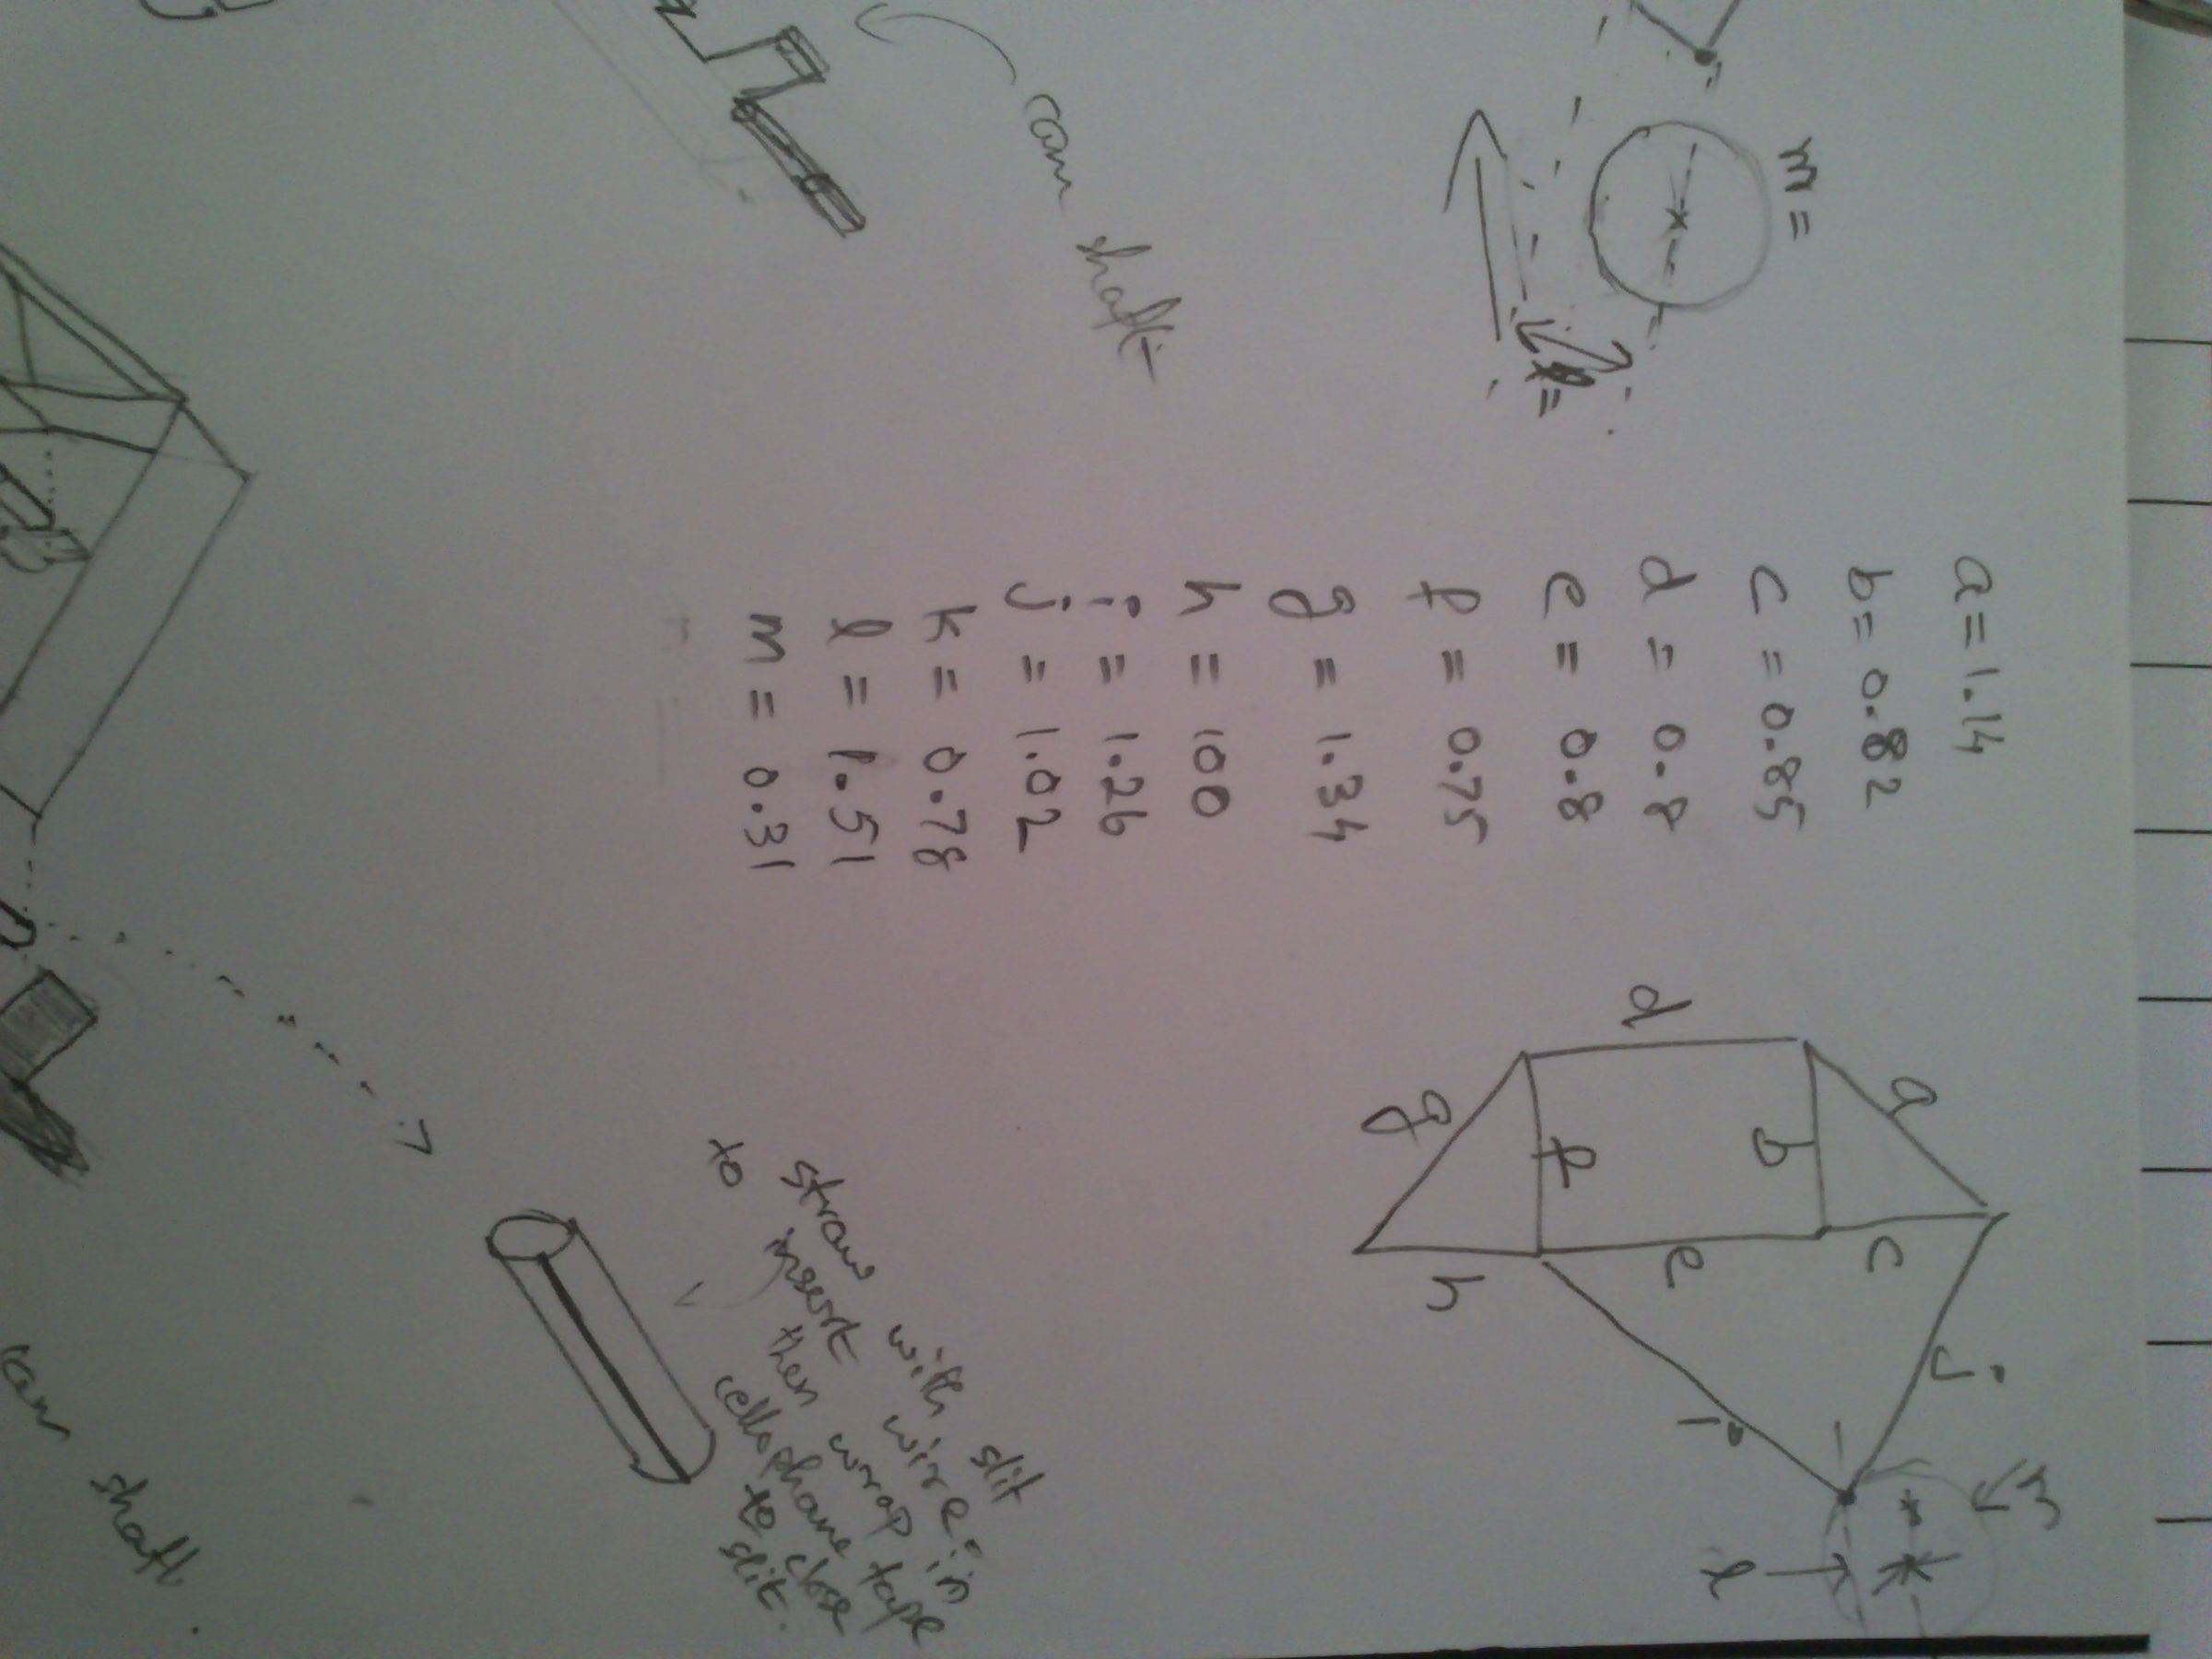 m =
cam shaft
l =
a = 1.14
b = 0.82
c = 0.85
d = 0.8
e = 0.8
f = 0.75
g = 1.34
h = 100
i = 1.26
j = 1.02
k = 0.78
l = 1.51
m = 0.31
a
b
c
d
e
f
g
h
i
j
m
k
l
straw with slit
to insert wire in
then wrap
cellophane tape
to close
slit.
cam shaft.